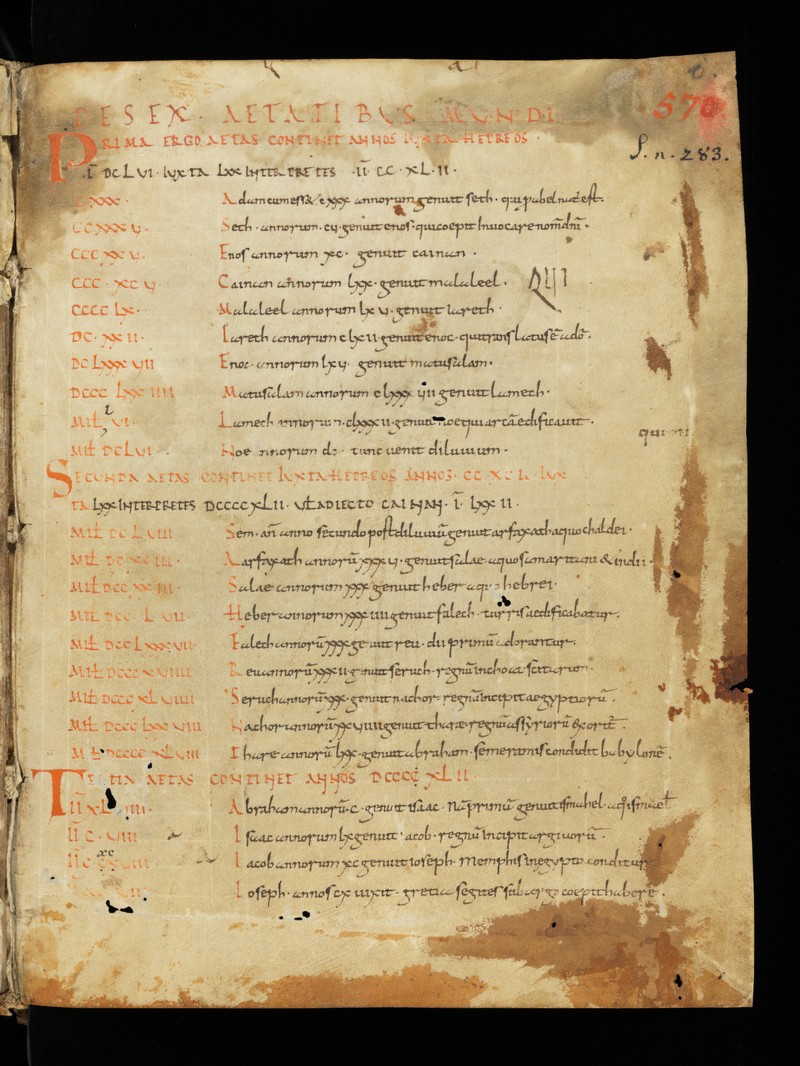 DE SEX · AETATIBUS MUNDI
570
PRIMA ERGO AETAS CONTINET ANNOS IUXTA HEBREOS ·
S. n. 283.
DCLVI · IUXTA LXX INTERPRETES · II CC · XL · II ·
CXXX · Adam cum esset cxxx annorum genuit seth · qui pabel natus est.
CCXXX V · Seth · annorum · cv · genuit enos · qui coepit invocare nom dni ·
CCC XX V · Enos annorum xc · genuit cainan ·
CCC · XC V · Cainan annorum lxx · genuit malaleel ·
CCCC LX · Malaleel annorum lx v · genuit iareth ·
DC · XX II · Iareth annorum c lx ii genuit enoc · qui translatus e ado ·
DC LXXX VII Enoc · annorum lx v · genuit matusalam ·
DCCC LXX IIII Matusalam annorum c lxxx vii genuit lamech ·
MIL VI · Lamech annorum · clxxx ii · genuit noe qui arca edificavit ·
MIL DC LVI · Noe annorum dc · tunc venit diluvium ·
SECUNDA AETAS CONTINET IUXTA HEBREOS ANNOS · CC XC II · IUX
TA LXX INTERPRETES DCCCC XLII · VEL ADIECTO CAINAN · I · LXX II ·
MIL DC L VIII Sem · an anno secundo post diluviu genuit arfaxath a quo chaldei ·
MIL DC XC III · Aarfaxath annoru xxx v · genuit salae · a quo samaritani & indi ·
MIL DCC XX III · Salae annorum xxx genuit heber a quo hebrei ·
MIL DCC L VII · Heber annorum xxx iiii genuit falech · turris aedificabatur ·
MIL DCC LXXX VII · Falech annoru xxx genuit reu · dii primu adorantur ·
MIL DCCC XVIIII Reu annoru xxx ii genuit seruch · regnu inchoat scitarum ·
MIL DCCC XL VIIII Seruch annoru xxx · genuit nachor · regnu incipit aegyptioru ·
MIL DCCC LXX VIII Nachor annoru xx viiii genuit thare regnu assyrioru exorit ·
MIL DCCCC XL VIII Thare annoru lxx · genuit abraham · semeramis condidit babylone ·
TERTIA AETAS CONTINET ANNOS DCCCC XL II
II XL VIII · Abraham annoru · c · genuit isaac ·
II C · VIII Isaac annorum lx genuit iacob · regnu incipit argivoru ·
Iacob annorum xc genuit ioseph · memphis in egypto conditur
Ioseph · annos cx vixit · gretia segites sub argo coepit habere ·